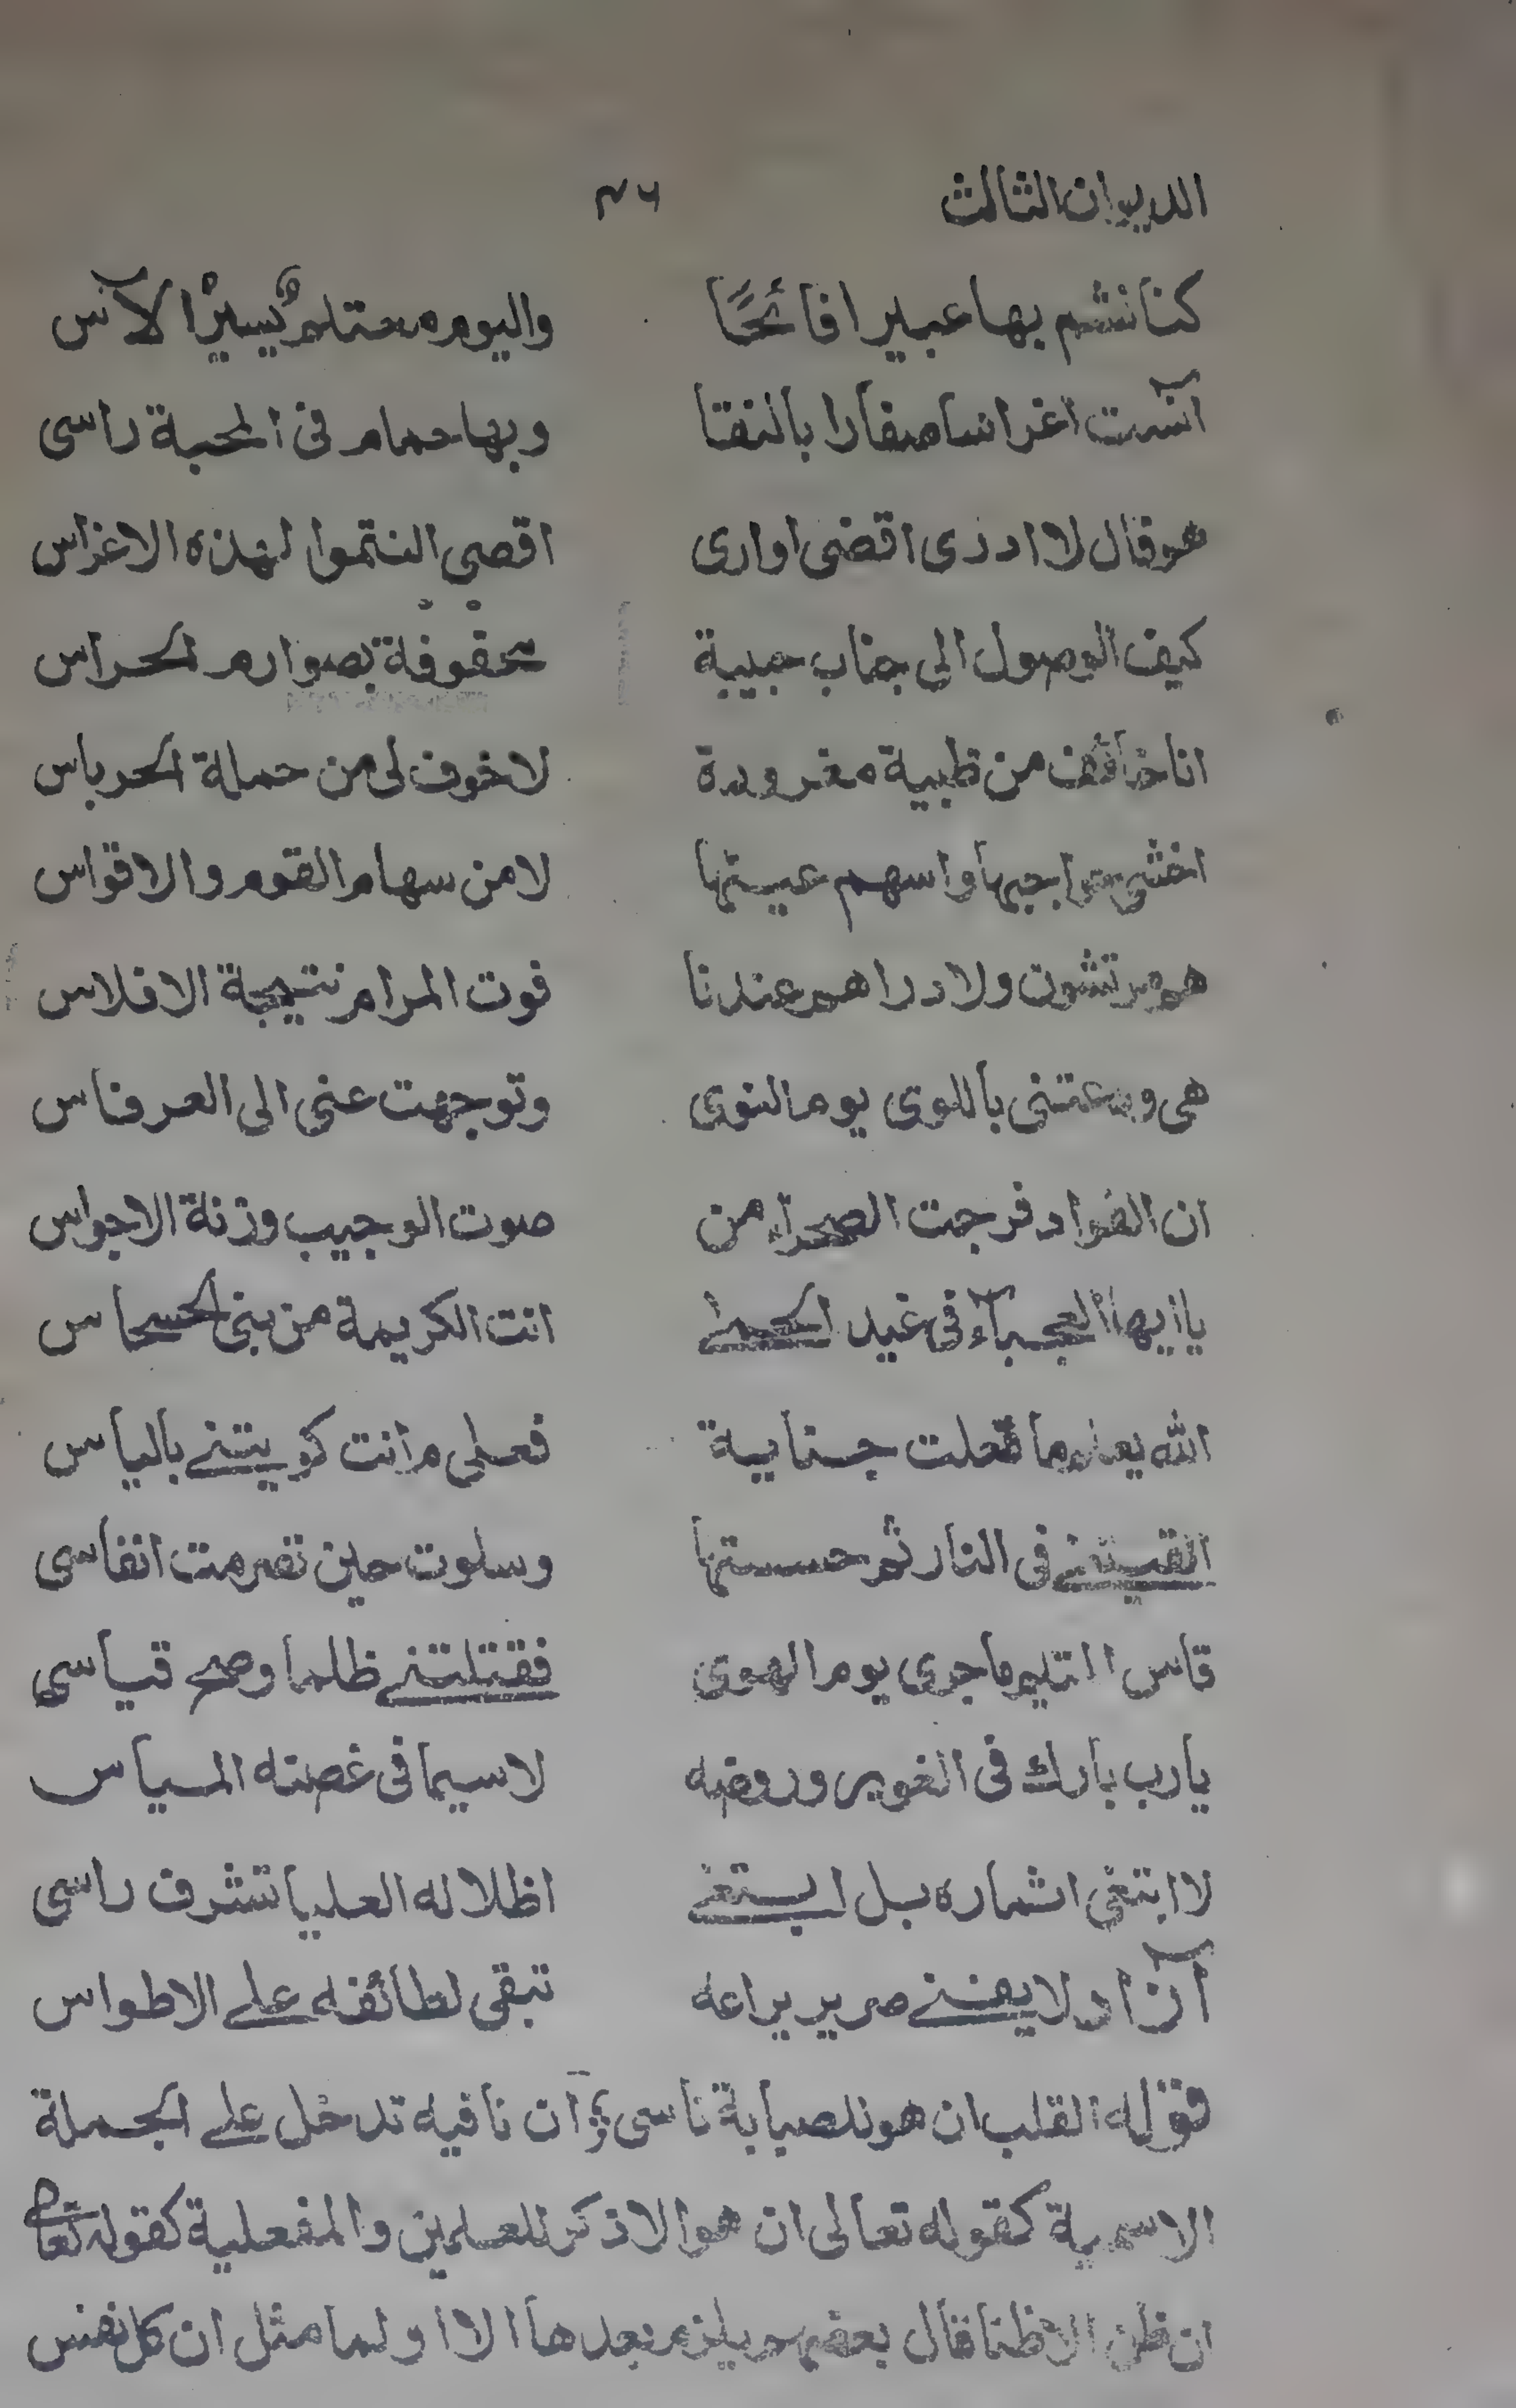 الديوان الثالث ٤٦
كنا نشم بها عبيرا فائحًا واليوم معتلم يسيرًا لآس
آنست اغراسا صفارا بالنقا وبها حمام فى المحبة راسى
هو قال لا ادرى اقضى اوارى اقصى النتموا لهذه الاغراس
كيف الوصول الى جناب حبيبة محفوفة بصوارم الحراس
انا خائف من ظبية مغرورة لا خوف لى من حملة الحرباس
اخشى حواجبها واسهم عينها لا من سهام القوم والاقواس
هم مرتشون ولا دراهم عندنا فوت المرام نتيجة الافلاس
هى ودعتنى باللوى يوم النوى وتوجهت عنى الى العرفاس
ان الفواد فرجت الصحراء من صوت الوجيب ورنة الاجواس
يا ايها العجباء فى غيد الحمى انت الكريمة من بنى الحسحاس
الله يعلم ما فعلت جناية فعلى م انت كويتنى بالياس
القيتنى فى النار ثم حسستها وسلوت حين تصرمت انفاسى
قاس المتيم ما جرى يوم الهوى فقتلتنى ظلما وصح قياسى
يا رب بارك فى الغوير وروضه لا سيما فى غصنه المياس
لا ابتغى اثماره بل ابتغى اظلاله العليا تشرف راسى
آزاد لا يفنى صرير يراعه تبقى لطائفه على الاطواس
قوله القلب ان هو للصبابة ناسى ان نافيه تدخل على الجملة
الاسمية كقوله تعالى ان هو الا ذكر للعلمين والفعلية كقوله تعا
ان نظن الا ظنا قال بعضهم يلزم بعدها الا او لما مثل ان كل نفس